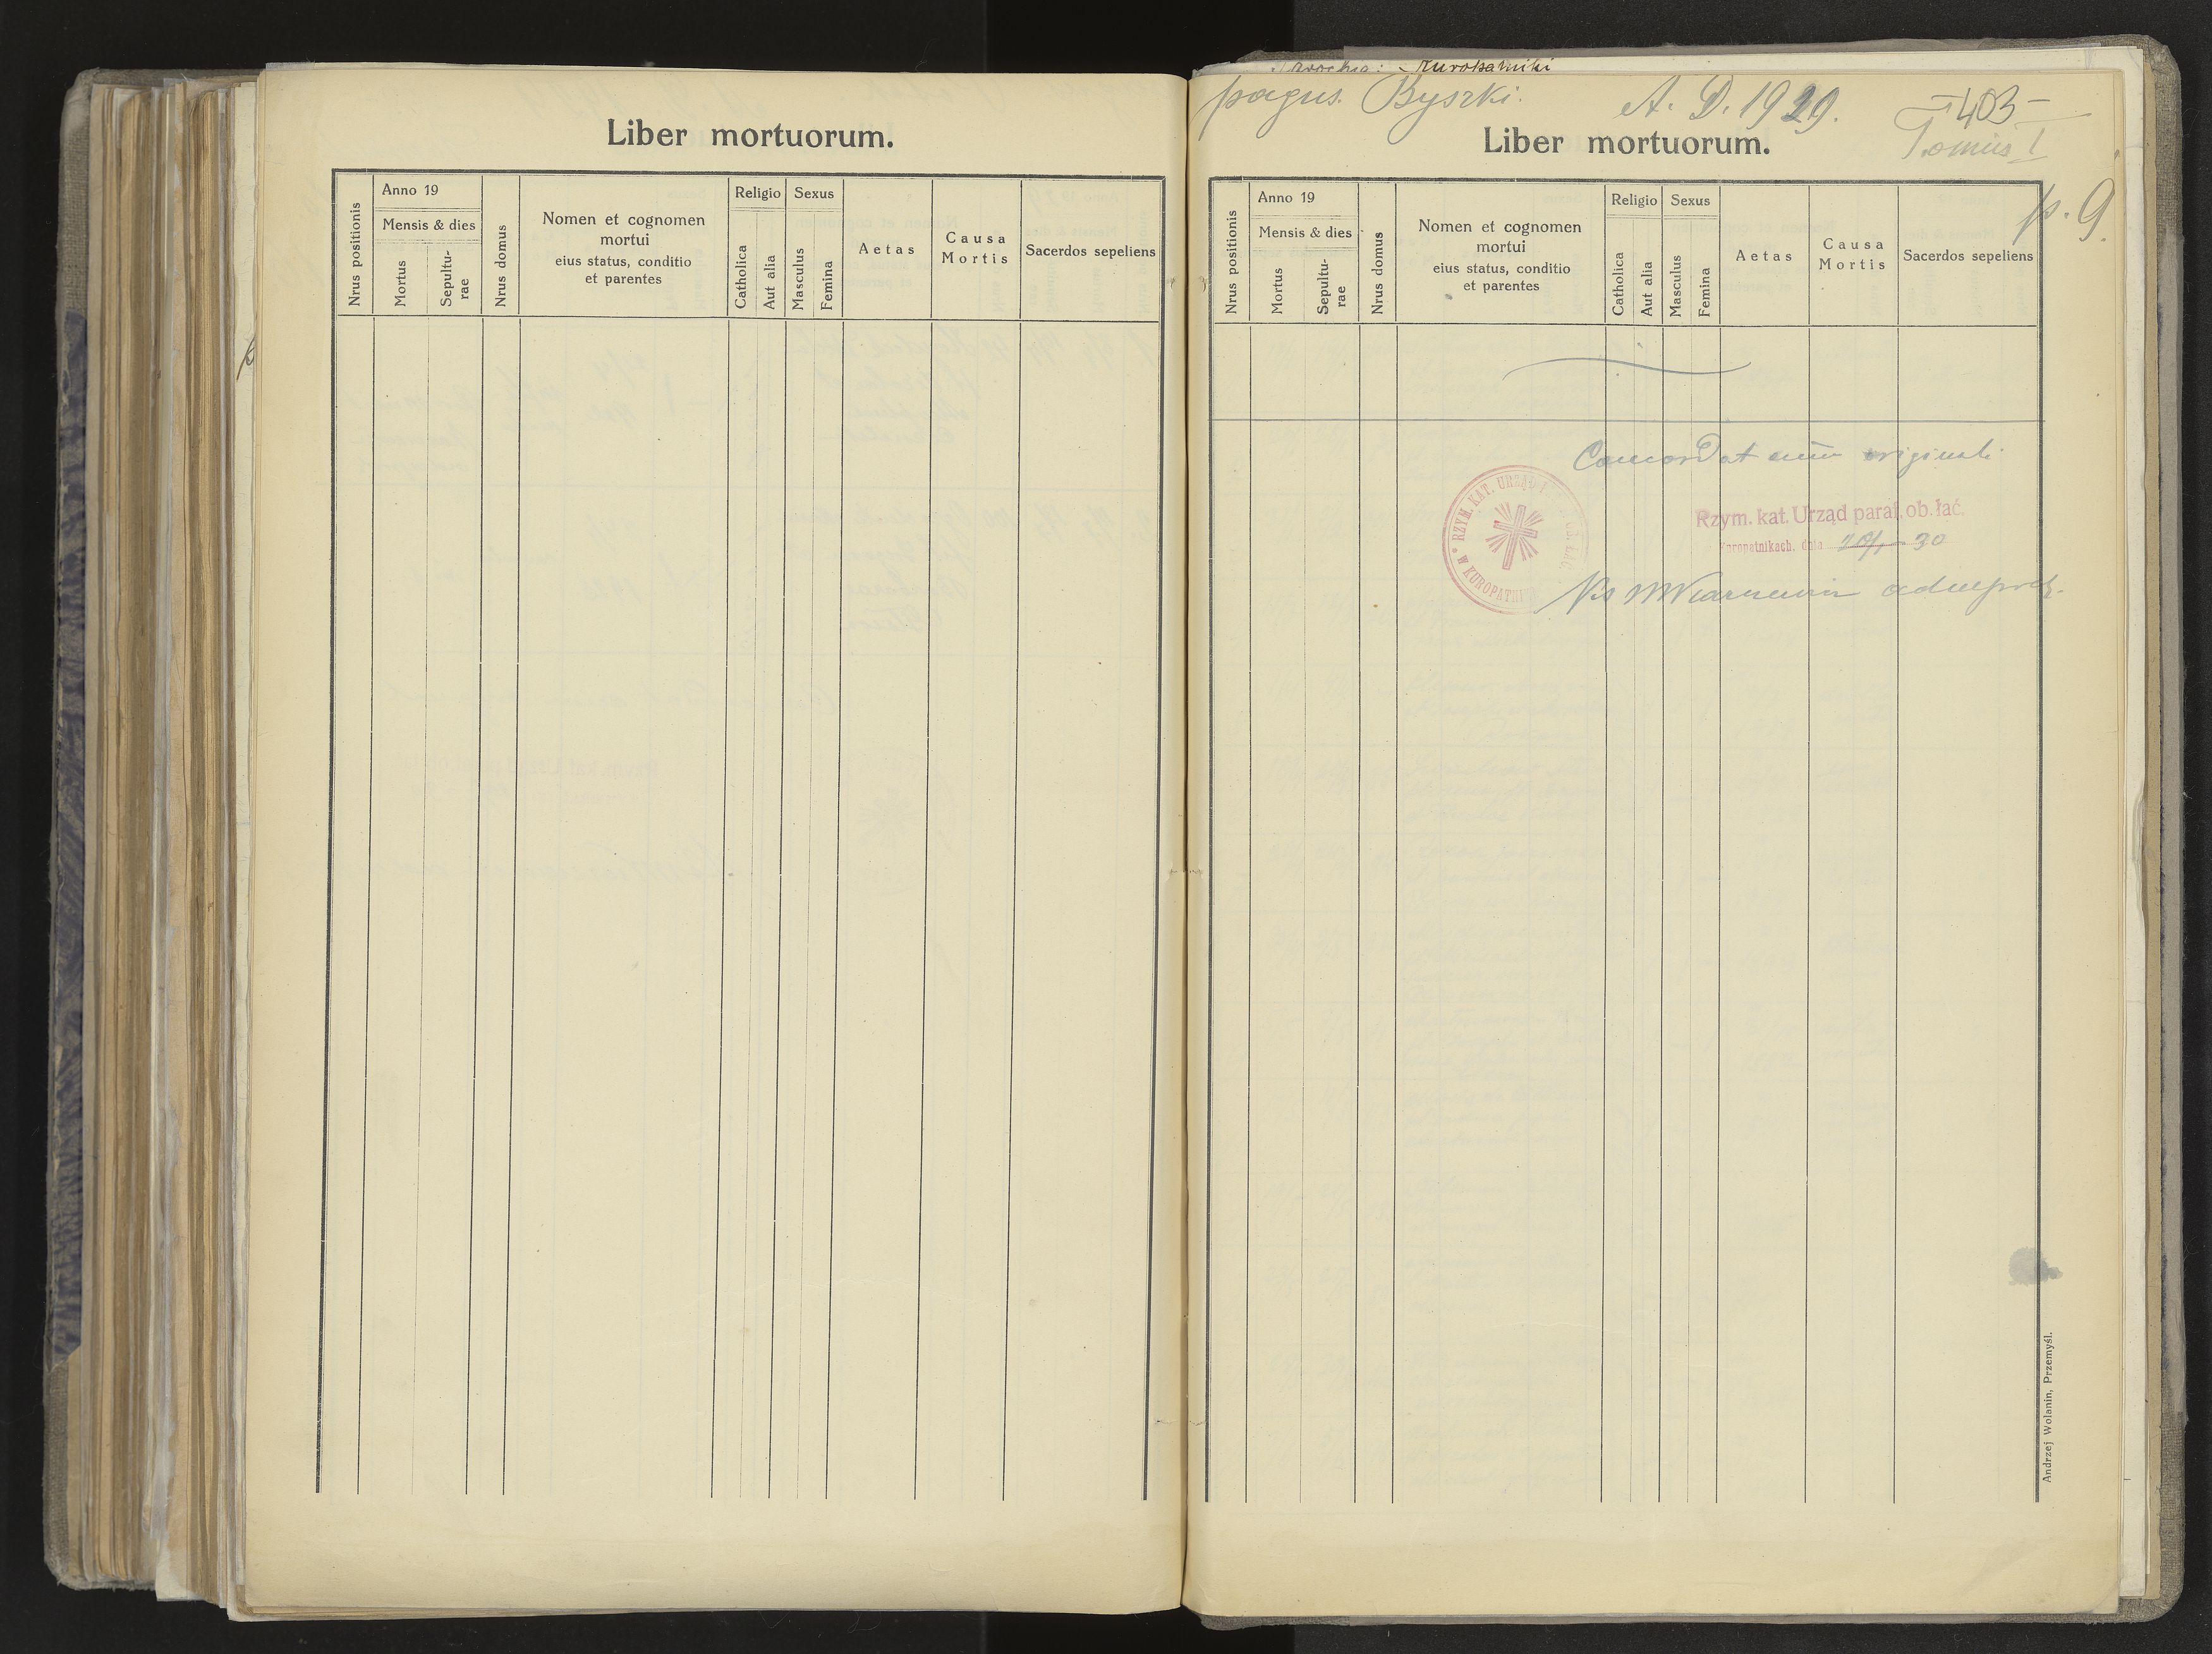 Liber mortuorum.
Nrus positionis
Anno 19
Mensis & dies
Mortus
Sepultu-
rae
Nrus domus
Nomen et cognomen
mortui
eius status, conditio
et parentes
Religio
Catholica
Aut alia
Sexus
Masculus
Femina
Aetas
Causa
Mortis
Sacerdos sepeliens
Kuropatniki
pagus. Byszki. A. D. 1929.
403
Tomus I
p. 9.
Liber mortuorum.
Nrus positionis
Anno 19
Mensis & dies
Mortus
Sepultu-
rae
Nrus domus
Nomen et cognomen
mortui
eius status, conditio
et parentes
Religio
Catholica
Aut alia
Sexus
Masculus
Femina
Aetas
Causa
Mortis
Sacerdos sepeliens
Concordat cum originali
RZYM. KAT. URZĄD
Rzym. kat. Urząd paraf. ob. łać.
Kuropatnikach, dnia 30
Andrzej Wolanin, Przemyśl.